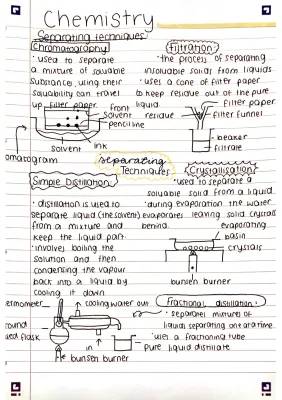 Chemistry
Separating techniques
Chromatography
· used to separate
a mixture of soluable
substance, using their
soluability can travel
up filter paper
front
solvent
pencil line
solvent
ink
omatogram
Filtration
· the process of separating
insoluable solids from liquids
· uses a cone of filter paper
to keep residue out of the pure
liquid.
filter paper
residue
filter funnel
beaker
filtrate
separating
Techniques
Simple Distillation
· distillation is used to
separate liquid (the solvent)
from a mixture and
keep the liquid part.
· involves boiling the
solution and then
condensing the vapour
back into a liquid by
cooling it down
Crystallisation
· used to separate a
soluable solid from a liquid
· during evaporation the water
evaporates leaving solid crystals
behind.
evaporating
basin
crystals
bunsen burner
ermometer
cooling water out
round
flask
in
bunsen burner
pure liquid distillate
Fractional distillation
· separates mixtures of
liquids separating one at a time
· uses a fractioning tube